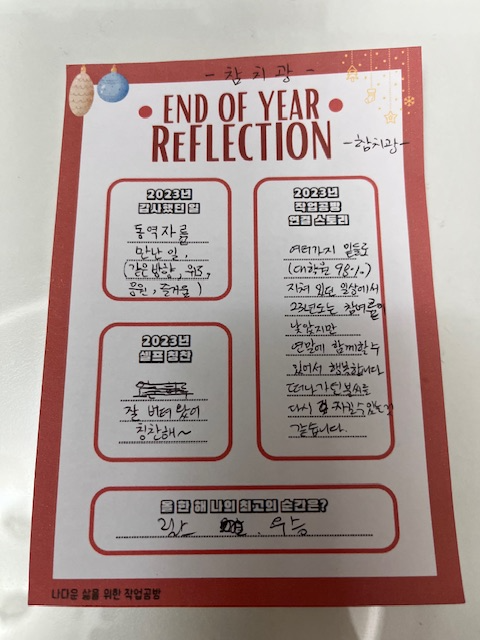 - 참 치 광 -
END OF YEAR
REFLECTION
-참치광-
2023년
감사했던 일
동역자를
만난 일,
(같은방향, 위로,
응원, 즐거움)
2023년
셀프 칭찬
잘 버텨왔어
칭찬해~
2023년
작업공방
연결 스토리
여러가지 일들로
(대학원 98%)
지쳐 있던 일상에서
23년도는 참여율이
낮았지만
연말에 함께할 수
있어서 행복합니다
떠나가던 불씨를
다시 수있는
같습니다.
올 한 해 나의 최고의 순간은?
우승
나다운 삶을 위한 작업공방